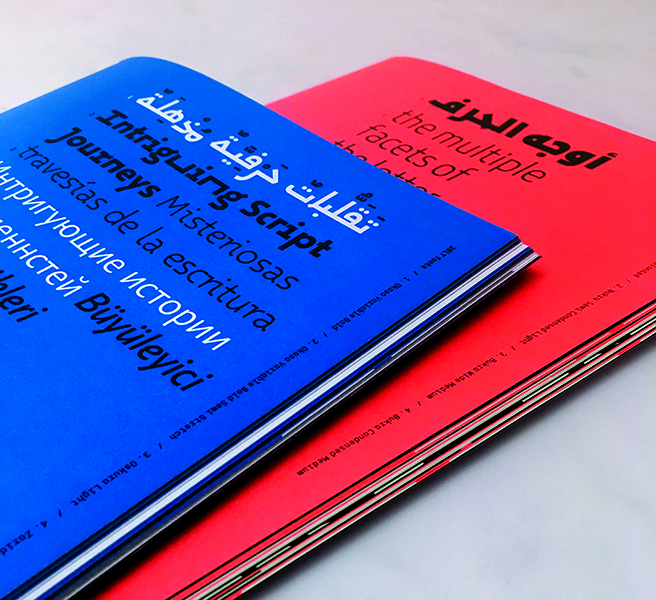 تقلبات حرفية مذهلة
Intriguing Script
Journeys Misteriosas
travesías de la escritura
Интригующие истории
Büyüleyici
29LT Fonts / 1. Okaso Variable Bold / 2. Okaso Variable Bold Semi Stretch / 3. Oskura Light / 4. Zarid
أوجه الحرف
the multiple
facets of
the letter
/ 2. Bukra Semi Condensed Light / 3. Bukra Wide Medium / 4. Bukra Condensed Medium